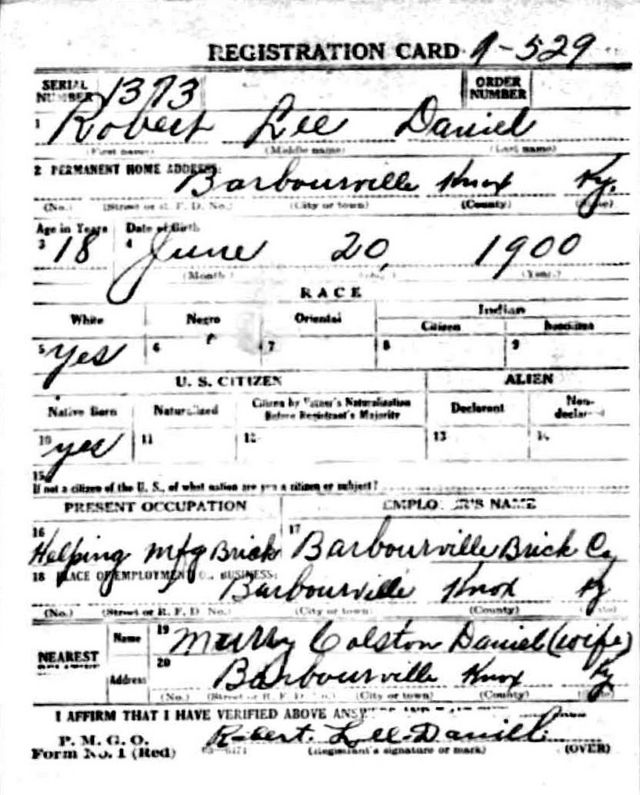 REGISTRATION CARD 9-529
SERIAL NUMBER 1373 ORDER NUMBER
1 Robert Lee Daniel
(First name) (Middle name) (Last name)
2 PERMANENT HOME ADDRESS:
Barbourville Knox Ky.
(No.) (Street or R. F. D. No.) (City or town) (County) (State)
Age in Years Date of Birth
3 18 4 June 20, 1900
(Month) (Year)
RACE
White Negro Oriental Indian
Citizen Noncitizen
5 yes 6 7 8 9
U. S. CITIZEN ALIEN
Native Born Naturalized Citizen by Father's Naturalization Before Registrant's Majority Declarant Non-declarant
10 yes 11 12 13 14
15
If not a citizen of the U. S., of what nation are you a citizen or subject?
PRESENT OCCUPATION EMPLOYER'S NAME
16 Helping Mfg Brick 17 Barbourville Brick Co
18 PLACE OF EMPLOYMENT OR BUSINESS:
Barbourville Knox Ky
(No.) (Street or R. F. D. No.) (City or town) (County) (State)
NEAREST Name 19 Murry Colston Daniel (wife)
Address 20 Barbourville Knox Ky
(No.) (Street or R. F. D. No.) (City or town) (County) (State)
I AFFIRM THAT I HAVE VERIFIED ABOVE ANSWERS AND
P. M. G. O.
Form No. 1 (Red) Robert Lee Daniel
(Registrant's signature or mark) (OVER)